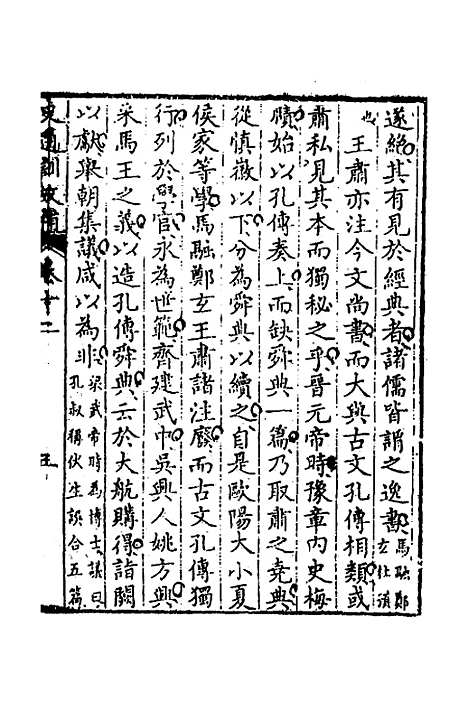 遂絕其有見於經典者諸儒皆謂之逸書馬融鄭玄杜預
也王肅亦注今文尚書而大與古文孔傳相類或
肅私見其本而獨秘之乎晉元帝時豫章內史梅
賾始以孔傳奏上而缺舜典一篇乃取肅之堯典
從慎徽以下分為舜典以續之自是歐陽大小夏
侯家等學馬融鄭玄王肅諸注廢而古文孔傳獨
行列於學官永為世範齊建武中吳興人姚方興
采馬王之義以造孔傳舜典云於大航購得詣闕
以獻舉朝集議咸以為非梁武帝時為博士議曰孔叔稱伏生誤合五篇
史通訓故補 卷十二 五